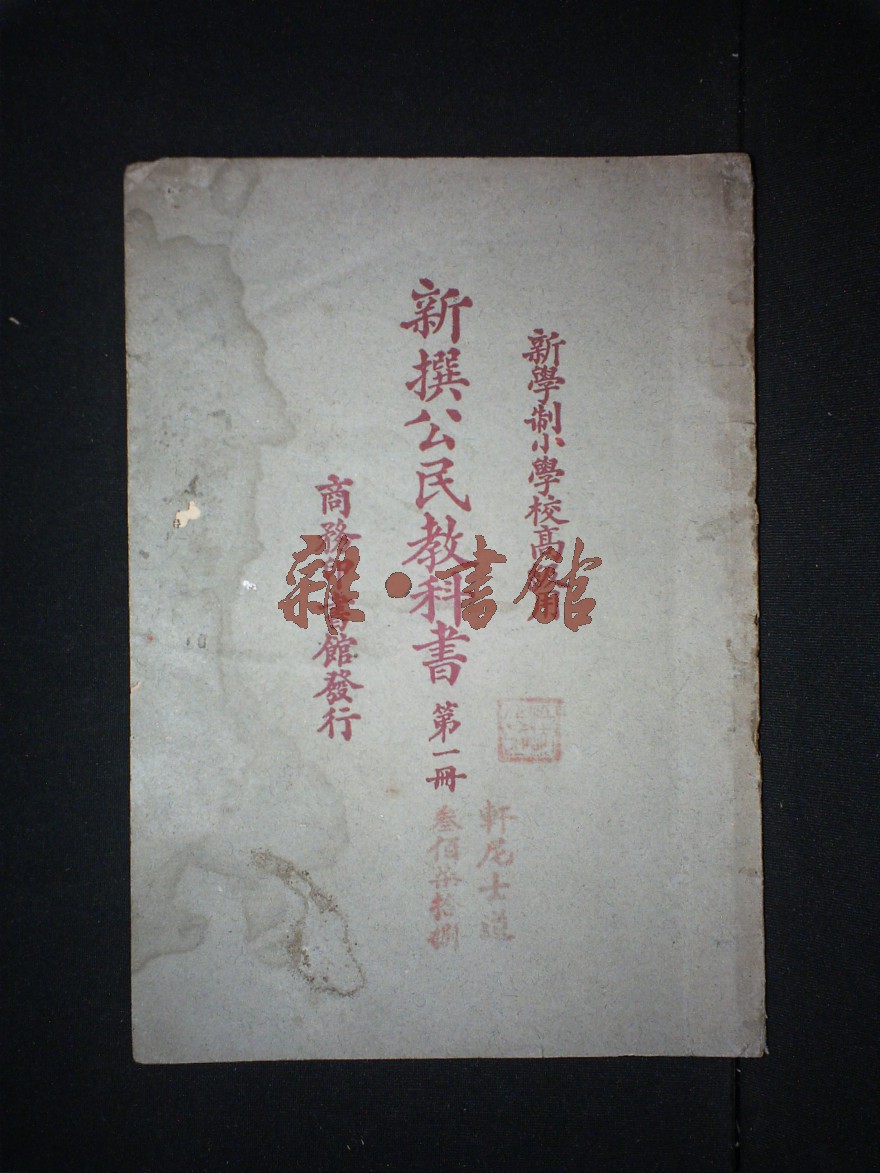 新學制小學校高級用
新撰公民教科書 第一冊
商務印書館發行
軒尼士道
叁佰柒拾捌
雜·書館